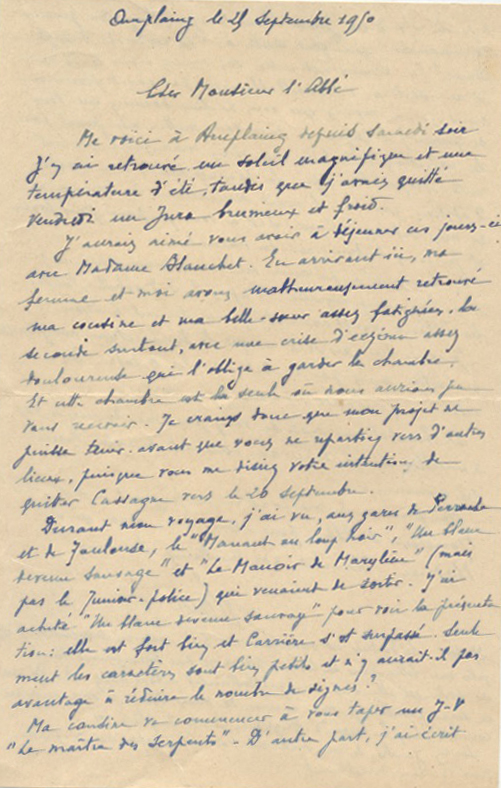 le 25 Septembre 1950
Cher Monsieur l'Abbé
Me voici à Aureplaing depuis samedi soir
J'y ai retrouvé un soleil magnifique et une
température d'été, tandis que j'avais quitté
vendredi un Jura brumeux et froid.
J'aurais aimé vous avoir à déjeuner ces jours-ci
avec Madame Blanchet. En arrivant ici, ma
femme et moi avons malheureusement retrouvé
ma cousine et ma belle-sœur assez fatiguées, la
seconde surtout, avec une crise d'eczéma assez
douloureuse qui l'oblige à garder la chambre.
Et cette chambre est la seule où nous aurions pu
vous recevoir. Je crains donc que mon projet ne
puisse tenir avant que vous ne repartiez vers d'autres
lieux, puisque vous me disiez votre intention de
quitter Cassagne vers le 20 septembre.
Durant mon voyage, j'ai vu, aux gares de Perrache
et de Toulouse, le "Manant au loup noir", "Un blanc
devenu sauvage" et "Le Manoir de Marylène" (mais
pas le Junior-police) qui venaient de sortir. J'ai
acheté "Un blanc devenu sauvage" pour voir la présenta
tion : elle est fort bien et Carrière s'est surpassé. Seule
ment les caractères sont bien petits et n'y aurait-il pas
avantage à réduire le nombre de signes ?
Ma cousine va commencer à vous taper un J-V
"Le maître des serpents" - D'autre part, j'ai écrit